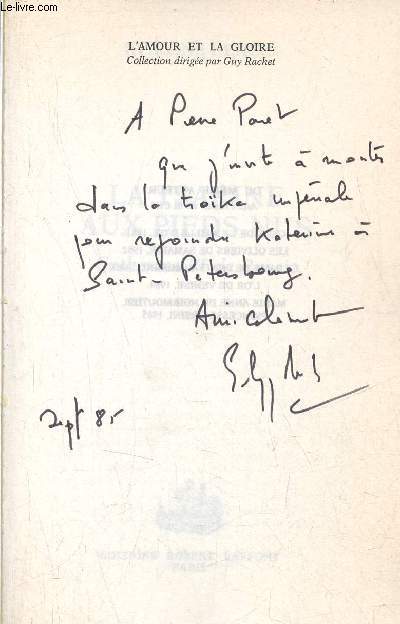 © Le-livre.com
L'AMOUR ET LA GLOIRE
Collection dirigée par Guy Rachet
A Pierre Poret
que j'invite à monter
dans la troïka impériale
pour rejoindre Katerina à
Saint-Petersbourg.
Amicalement
Sept 85